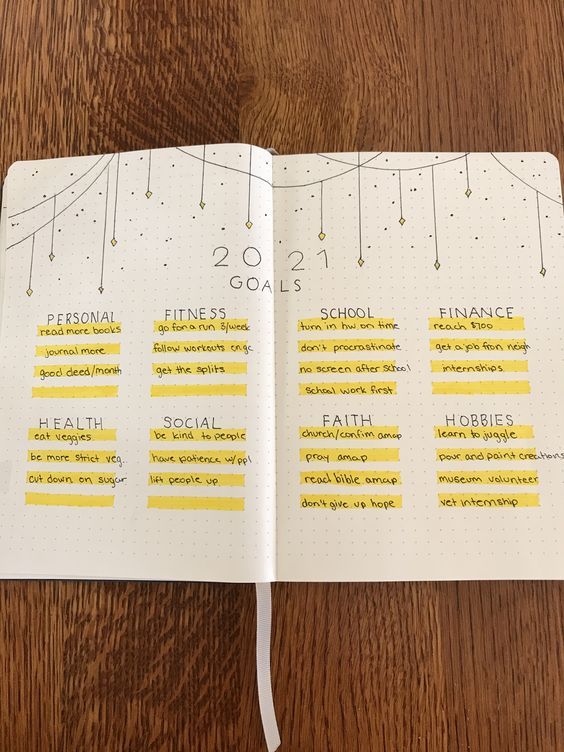 2021
GOALS
PERSONAL
read more books
journal more
good deed/month
FITNESS
go for a run 3/week
follow workouts
get the splits
SCHOOL
turn in hw on time
don't procrastinate
no screen after school
school work first
FINANCE
reach $700
get a job from neigh
internships
HEALTH
eat veggies
be more strict veg.
cut down on sugar
SOCIAL
be kind to people
have patience w/ppl
lift people up
FAITH
church/confirm amap
pray amap
read bible amap
don't give up hope
HOBBIES
learn to juggle
pour and paint creations
museum volunteer
vet internship